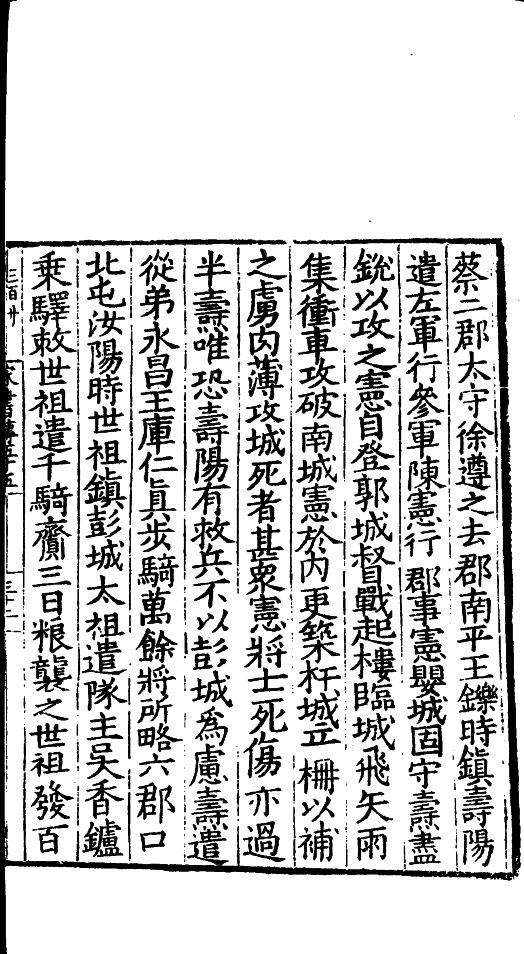 蔡二郡太守徐遵之去郡南平王鑠時鎮壽陽
遣左軍行參軍陳憲行郡事憲嬰城固守燾盡
銳以攻之憲自登郭城督戰起樓臨城飛矢雨
集衝車攻破南城憲於內更築杆城立柵以補
之虜肉薄攻城死者甚衆憲將士死傷亦過
半燾唯恐壽陽有救兵不以彭城爲慮燾遣
從弟永昌王庫仁真步騎萬餘將所略六郡口
北屯汝陽時世祖鎮彭城太祖遣隊主吳香鑪
乘驛敕世祖遣千騎齎三日粮襲之世祖發百
三百卅
宋書傳五十五
三十二